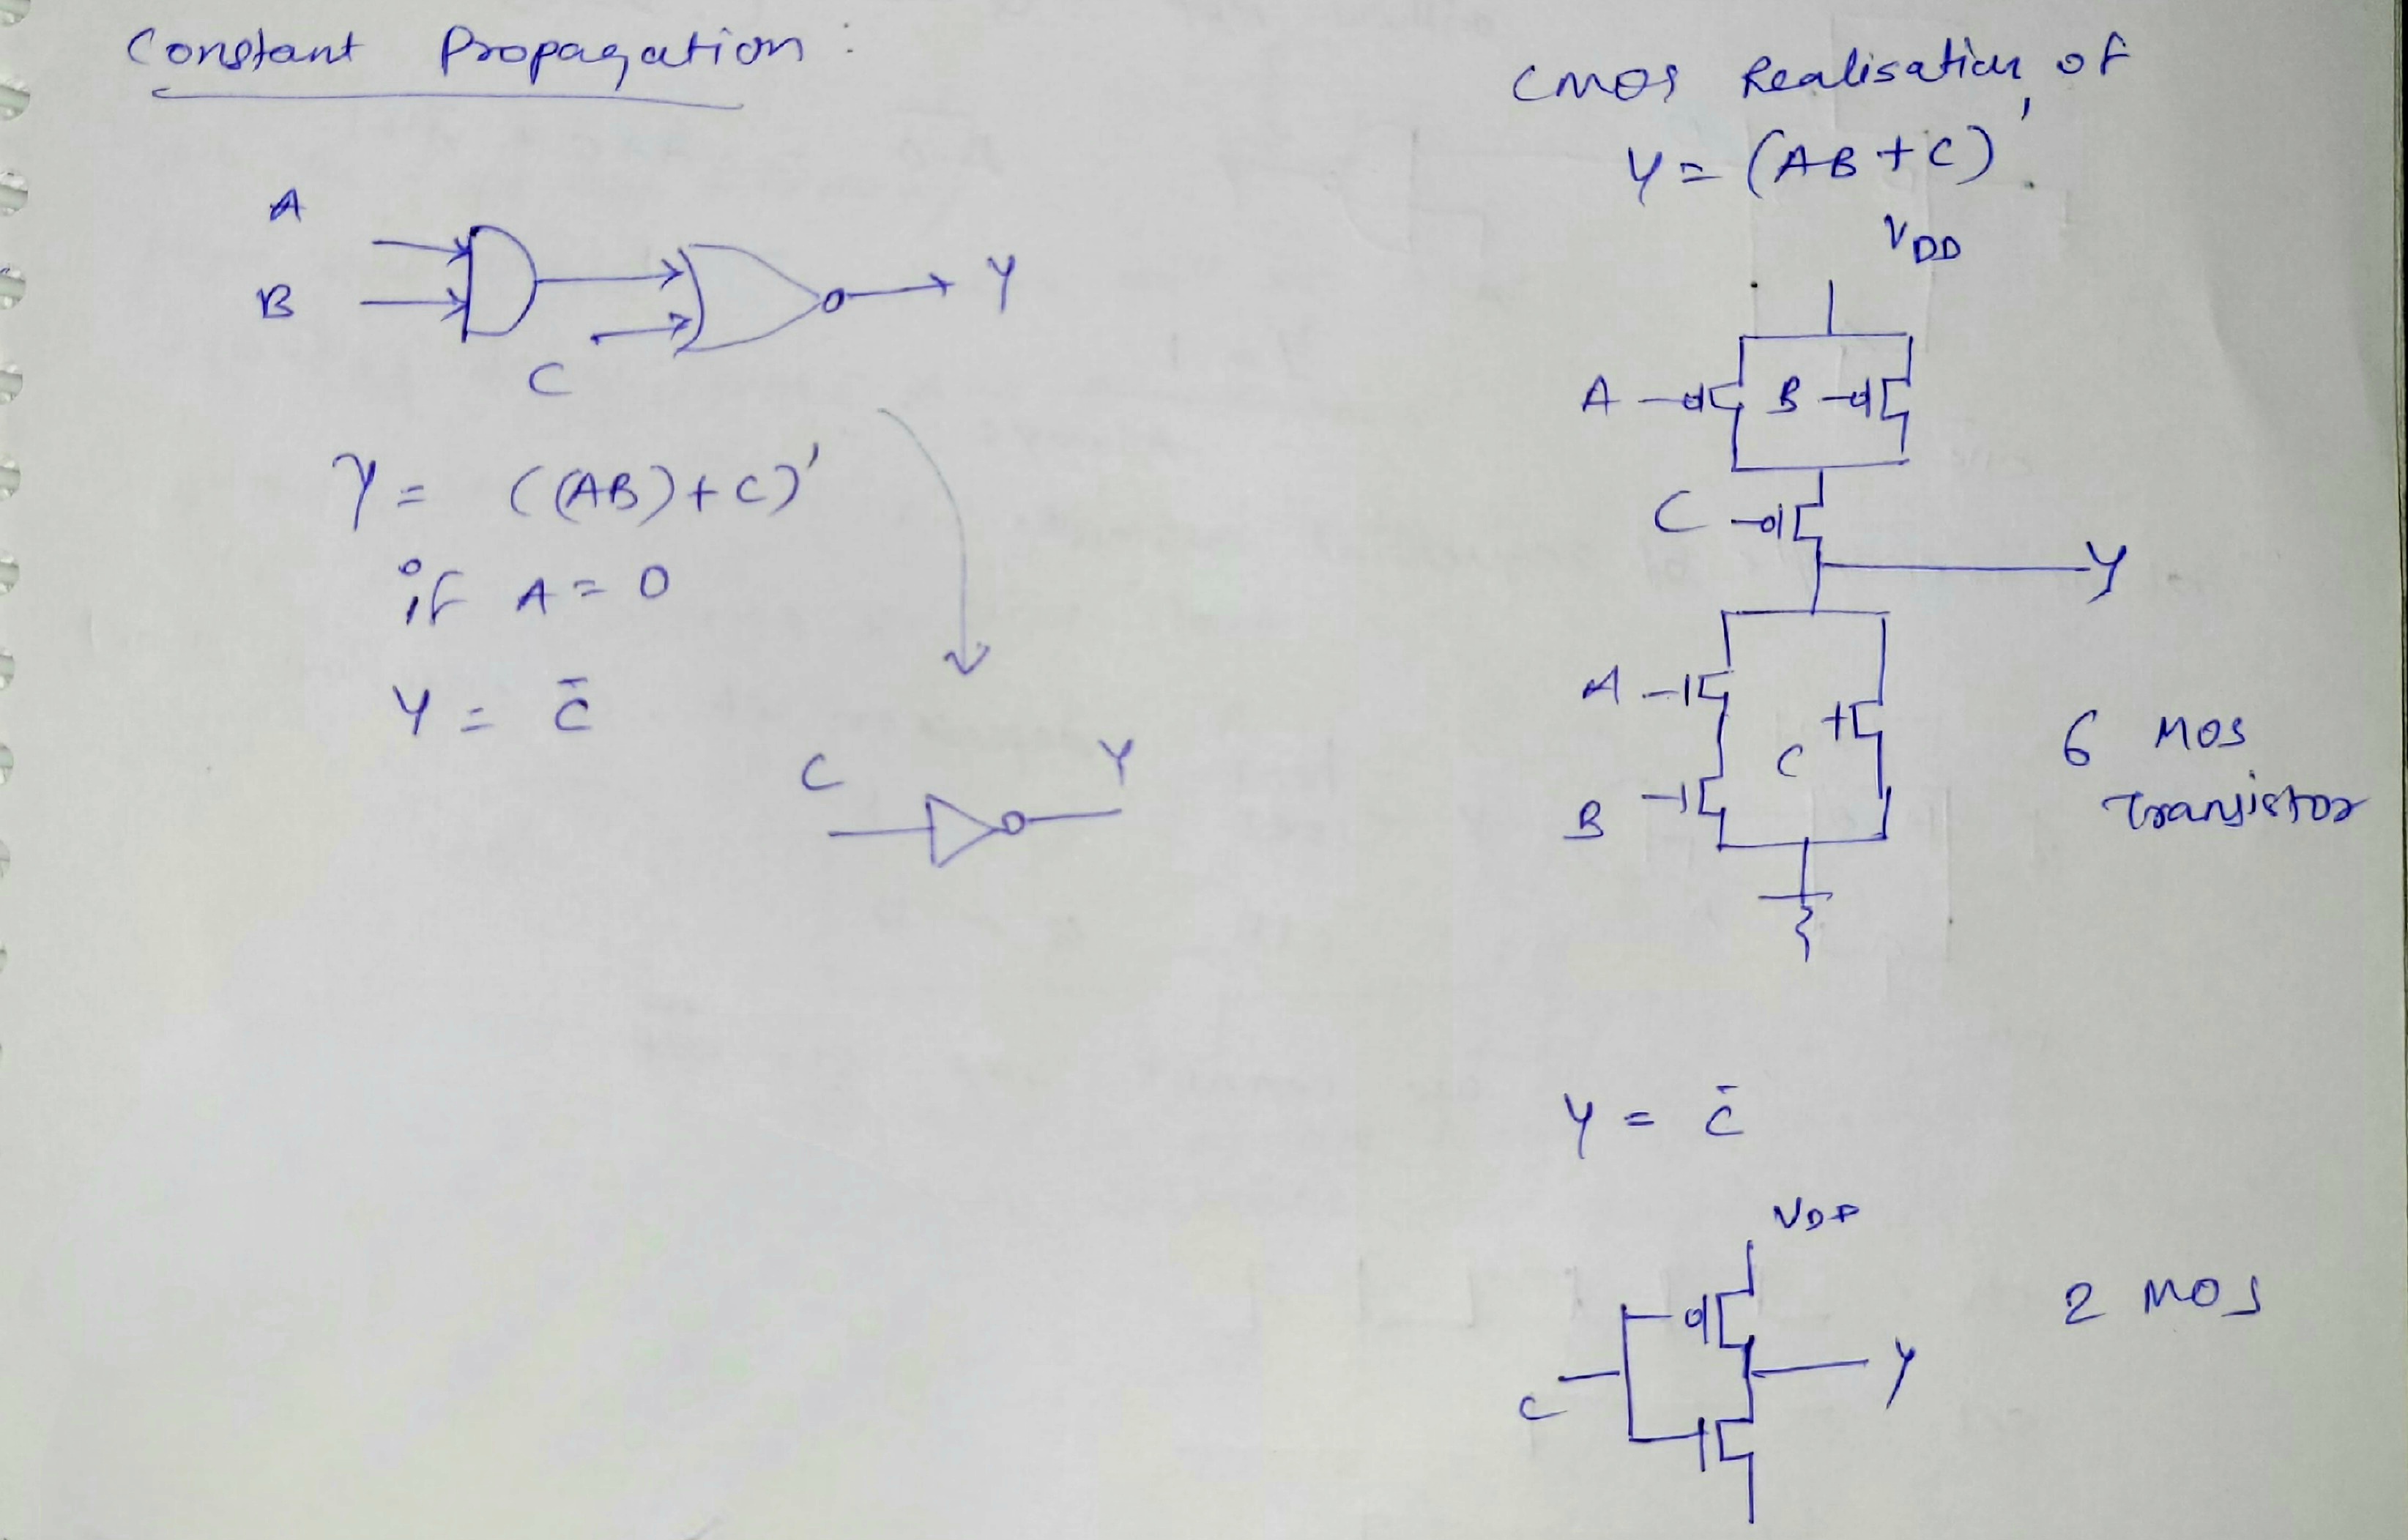 Constant Propagation :
A
B
C
Y
Y = ((AB)+C)'
if A = 0
Y = C̄
C
Y
CMOS Realisation of
Y = (AB+C)'
VDD
A
B
C
Y
A
B
C
6 MOS
Transistor
Y = C̄
VDD
C
Y
2 MOS